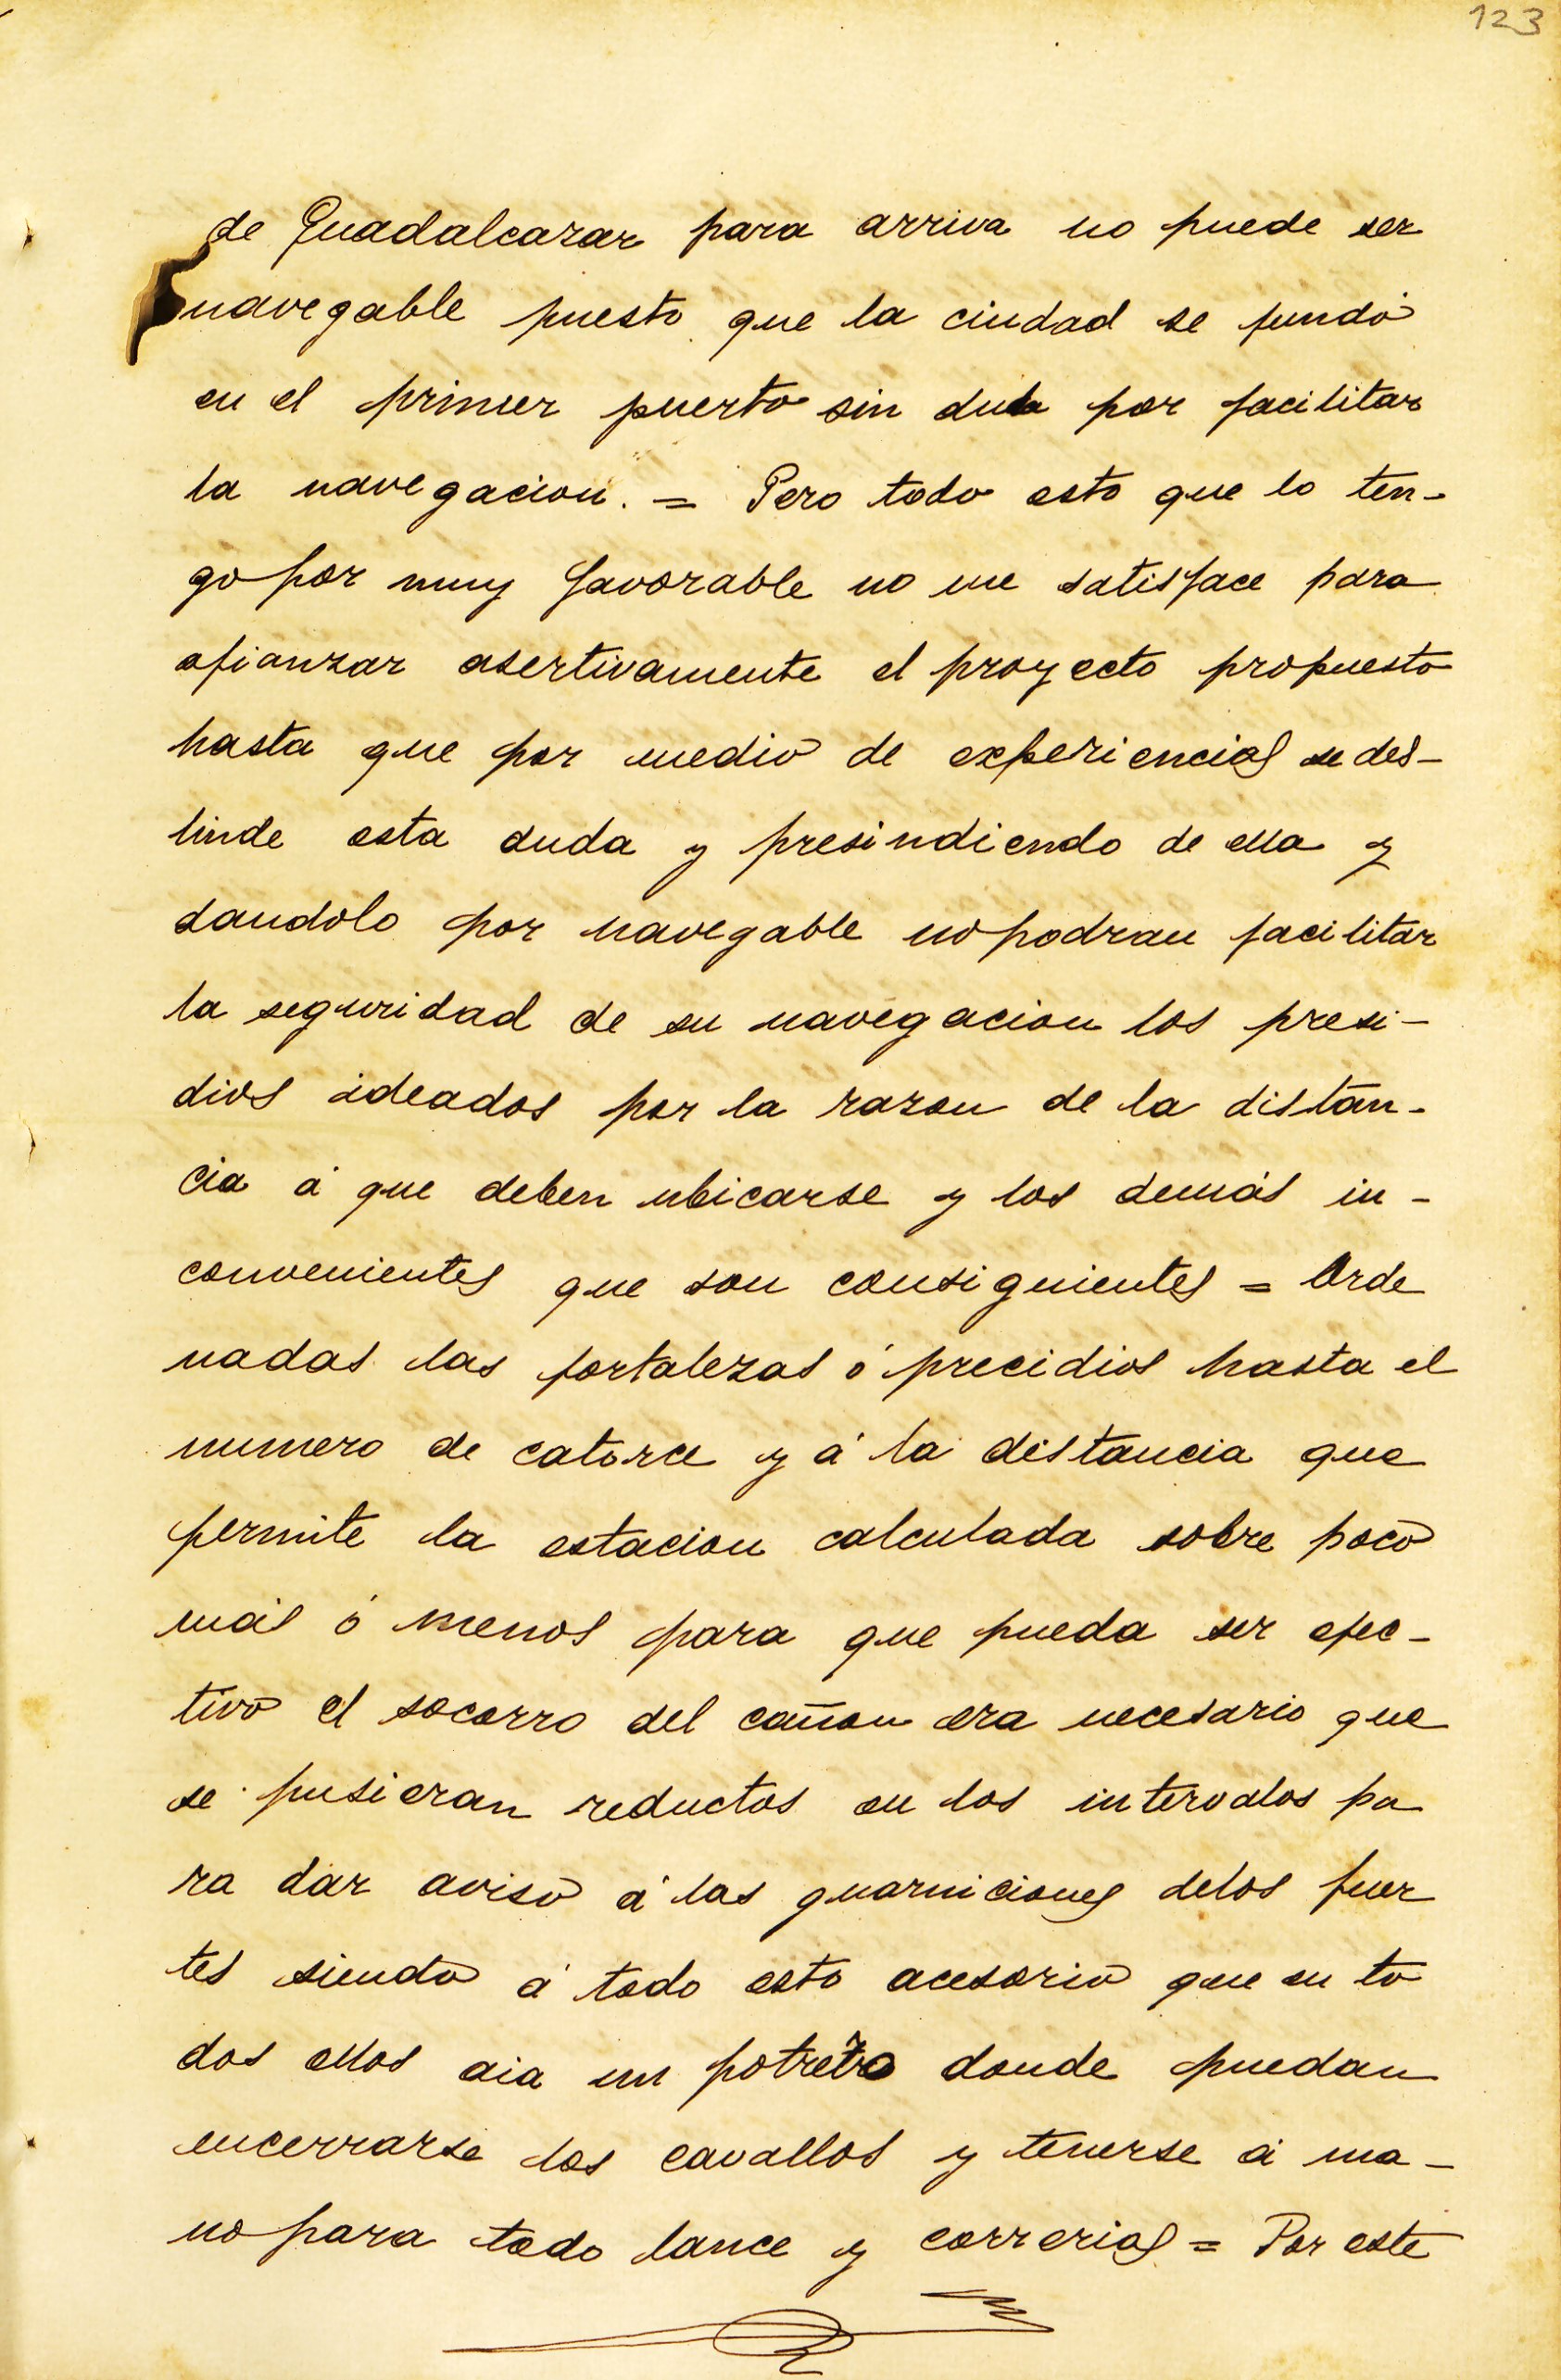 123
de Guadalcazar para arriva no puede ser
navegable puesto que la ciudad se fundó
en el primer puerto sin duda por facilitar
la navegacion. = Pero todo esto que lo ten-
go por muy favorable no me satisface para
afianzar asertivamente el proyecto propuesto
hasta que por medio de experiencias se des-
linde esta duda y presindiendo de ella y
dandolo por navegable no podran facilitar
la seguridad de su navegacion los presi-
dios ideados por la razon de la distan-
cia á que deben ubicarse y los demás in-
convenientes que son consiguientes = Orde
nadas las fortalezas ó precidios hasta el
numero de catorce y á la distancia que
permite la estacion calculada sobre poco
más ó menos para que pueda ser efec-
tivo el socorro del cañon era necesario que
se pusieran reductos en los intervalos pa
ra dar aviso á las guarniciones delos fuer
tes siendo á todo esto acesorio que en to
dos ellos aia un potrero donde puedan
encerrarse los cavallos y tenerse á ma-
no para todo lance y correrias = Por este